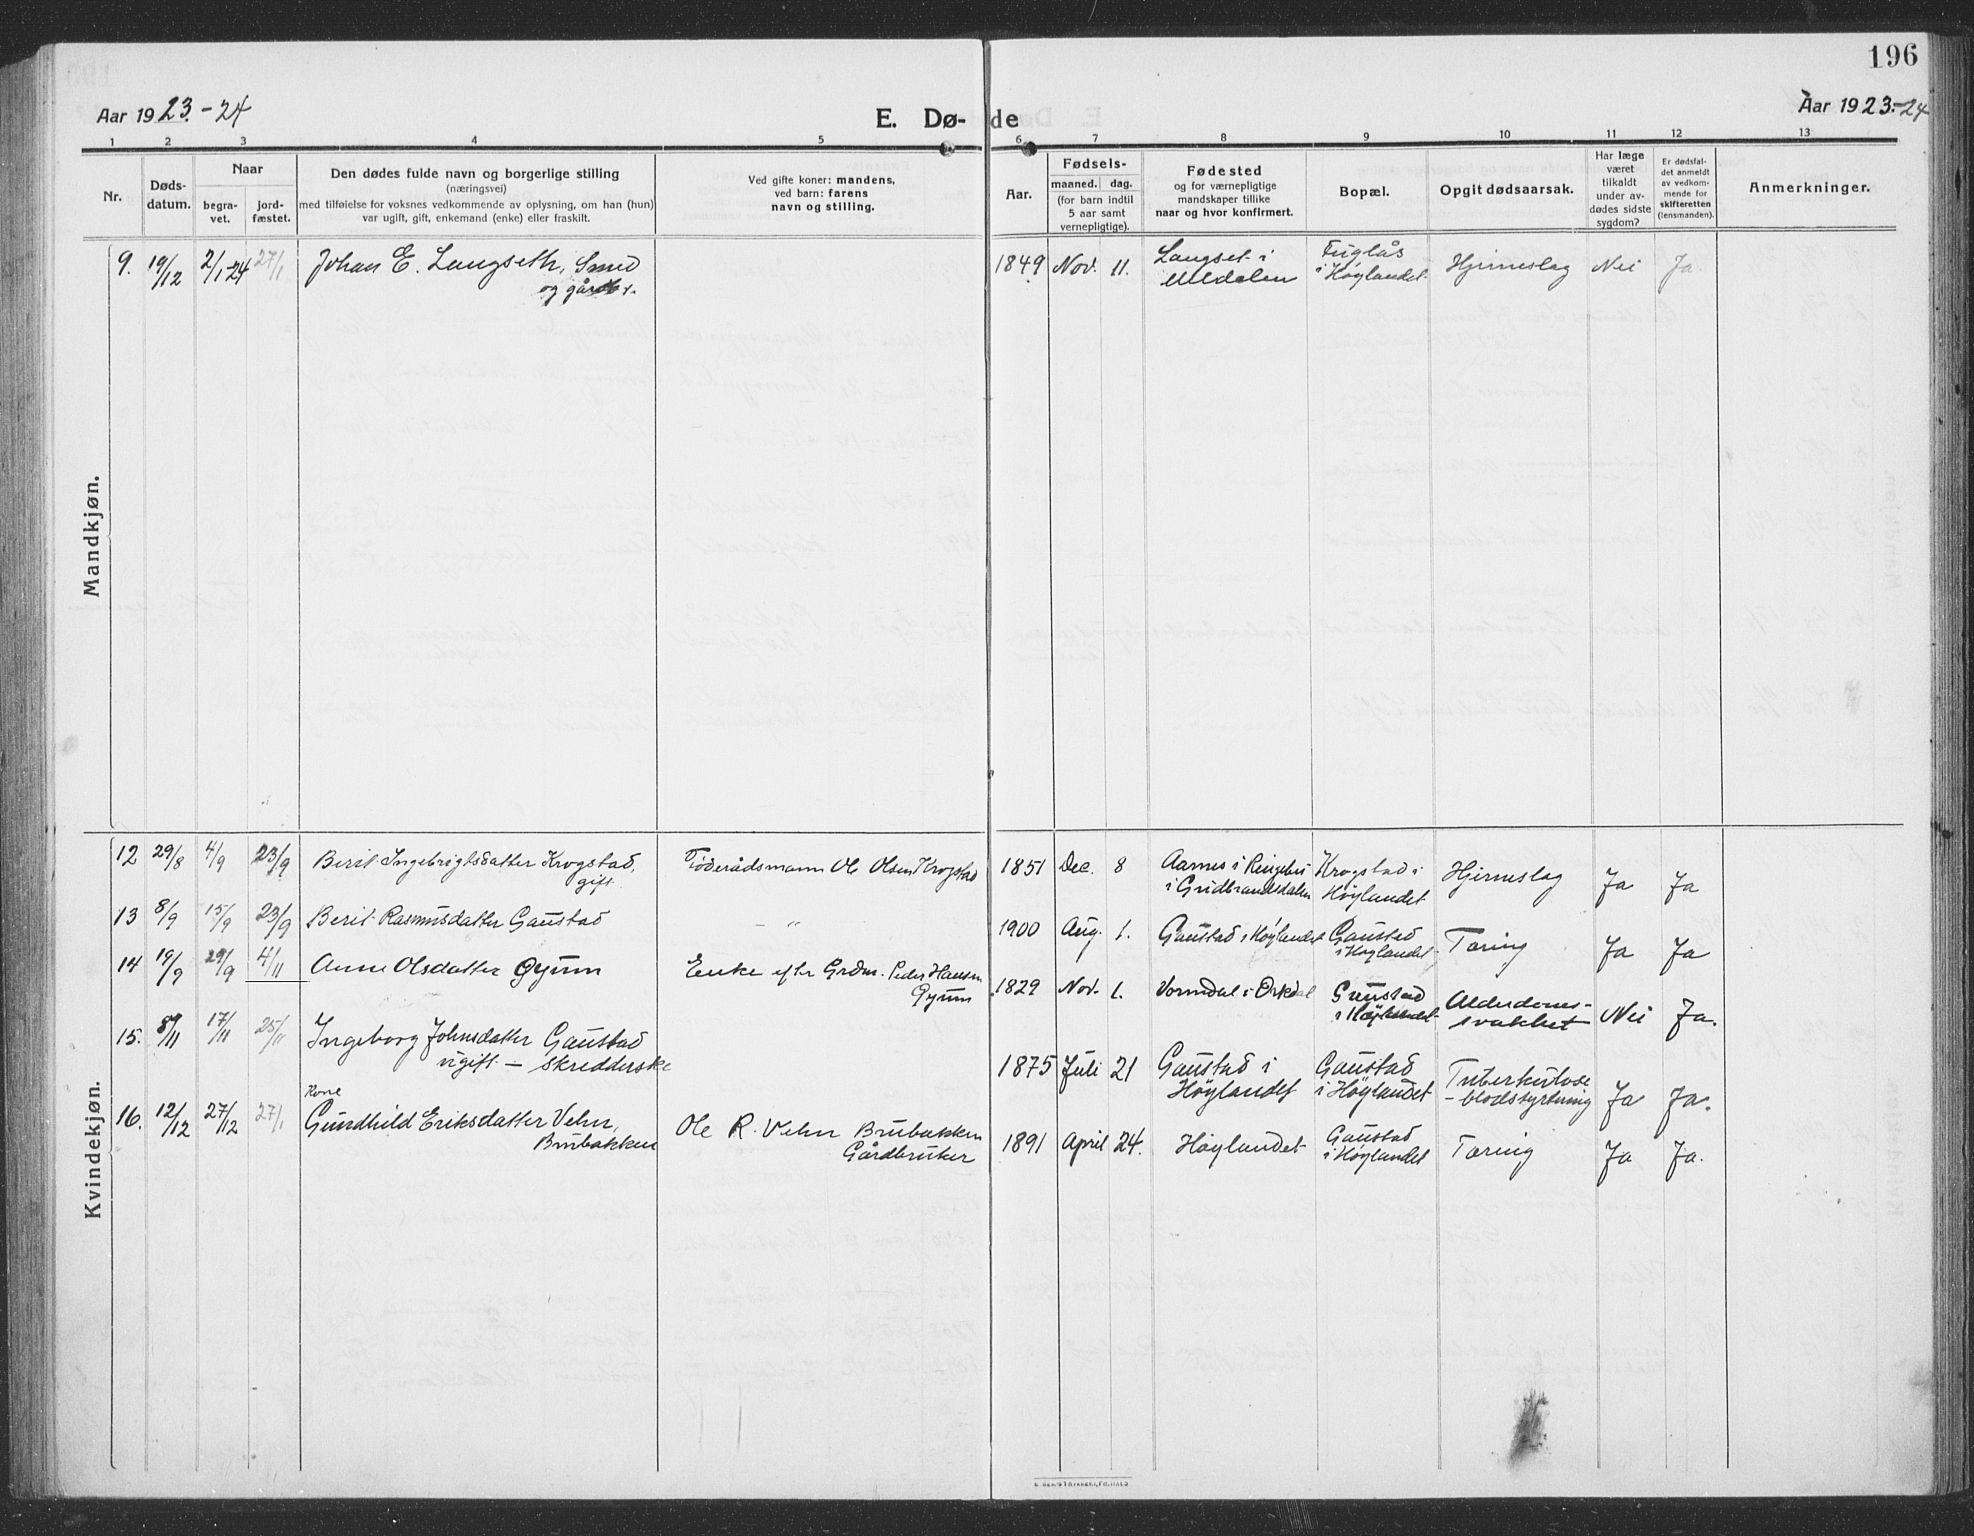 196
Aar 1923.-24
E. Dø-de
Aar 1923.-24
1 2 3 4 5 6 7 8 9 10 11 12 13
Nr.
Døds-
datum.
Naar
begra-
vet.
jord-
fæstet.
Den dødes fulde navn og borgerlige stilling
(næringsvei)
med tilføielse for voksnes vedkommende av oplysning, om han (hun)
var ugift, gift, enkemand (enke) eller fraskilt.
Ved gifte koner: mandens,
ved barn: farens
navn og stilling.
Aar.
Fødsels-
maaned. dag.
(for barn indtil
5 aar samt
vernepligtige).
Fødested
og for værnepligtige
mandskaper tillike
naar og hvor konfirmert.
Bopæl.
Opgit dødsaarsak.
Har læge
været
tilkaldt
under av-
dødes sidste
sygdom?
Er dødsfal-
det anmeldt
av vedkom-
mende for
skifteretten
(lensmanden).
Anmerkninger.
Mandkjøn.
9. 19/12 2/1-24 27/1 Johan E. Langseth, Smed
og gårdbr.
1849 Nov. 11. Langset i
Meldalen
Fuglås
i Høylandet
Hjerneslag Nei Ja
Kvindekjøn.
12 29/8 4/9 23/9 Berit Ingebrigtsdatter Krogstad,
gift.
Föderådsmann Ole Olsen Krogstad
1851 Dec. 8 Aarnes i Ringebu
i Gudbrandsdalen
Krogstad i
Høylandet
Hjerneslag Ja Ja
13 8/9 15/9 23/9 Berit Rasmusdatter Gaustad
— „
1900 Aug. 1. Gaustad i Høylandet
Gaustad
i Høylandet
Tæring Ja Ja
14 19/9 29/9 4/11 Anne Olsdatter Øyum
Enke efter Grdm. Peder Hansen
Øyum
1829 Nov. 1. Vormdal i Orkdal
Gaustad
i Høylandet
Alderdoms-
svakhet
Nei Ja.
15. 8/11 17/11 25/11 Ingeborg Johnsdatter Gaustad
ugift — skredderske
1875 Juli 21 Gaustad i
Høylandet
Gaustad
i Høylandet
Tuberkulose
- blodstyrtning
Ja Ja.
16. 12/12 27/12 27/1 Kone
Gundhild Eriksdatter Vehn,
Brubakken
Ole R. Vehn Brubakken
Gårdbruker
1891 April 24. Høylandet
Gaustad
i Høylandet
Tæring Ja Ja.